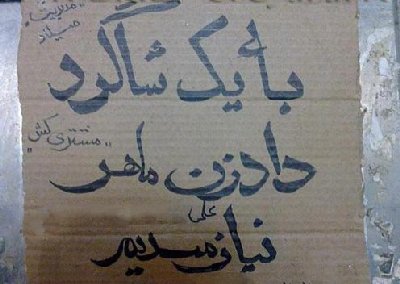 مدیریت
بائ یک شاگرد
مشتری کش
دادزن ماهر
علی
نیازمندیم